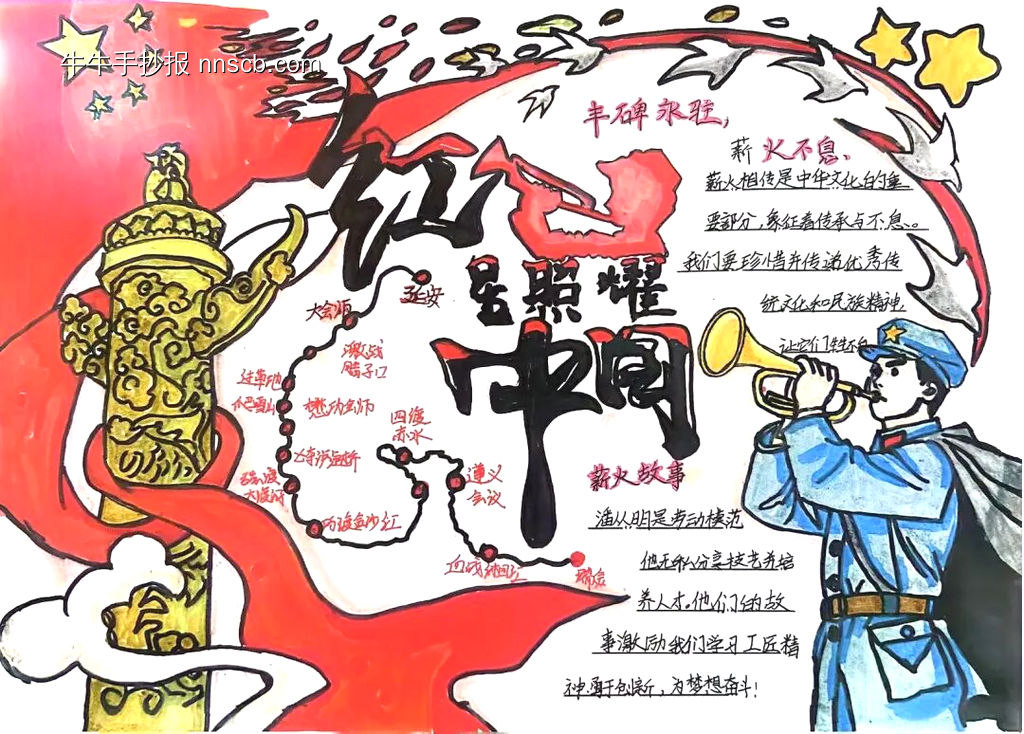 牛牛手抄报 nnscb.com
红星照耀中国
丰碑永驻,
薪火不息、
薪火相传是中华文化的重
要部分,象征着传承与不息、。
我们要珍惜并传递优秀传
统文化和民族精神,
让它们生生不息
延安
大会师
激战
腊子口
过草地
爪巴雪山
懋功会师
四渡
赤水
飞夺泸定桥
强渡
大渡河
巧渡金沙江
遵义
会议
血战湘江
瑞金
薪火故事
潘从明是劳动模范
他无私分享技艺并培
养人才。他们的故
事激励我们学习工匠精
神勇于创新,为梦想奋斗!